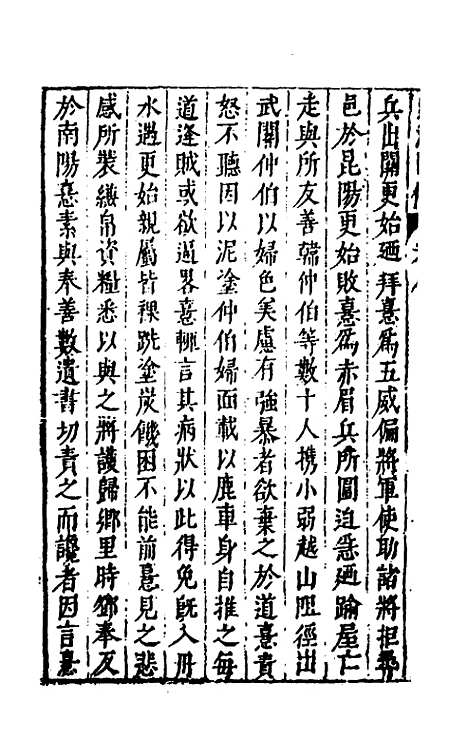 兵出關更始廼拜憙爲五威偏將軍使助諸將拒尋
邑於昆陽更始敗憙爲赤眉兵所圍迫急廼踰屋亡
走與所友善韓仲伯等數十人携小弱越山阻徑出
武關仲伯以婦色美慮有強暴者欲棄之於道憙責
怒不聽因以泥塗仲伯婦面載以鹿車身自推之每
道逢賊或欲逼畧憙輒言其病狀以此得免旣入丹
水遇更始親屬皆裸跣塗炭饑困不能前憙見之悲
感所裝縑帛資糧悉以與之將護歸鄉里時鄧奉反
於南陽憙素與奉善數遺書切責之而讒者因言憙